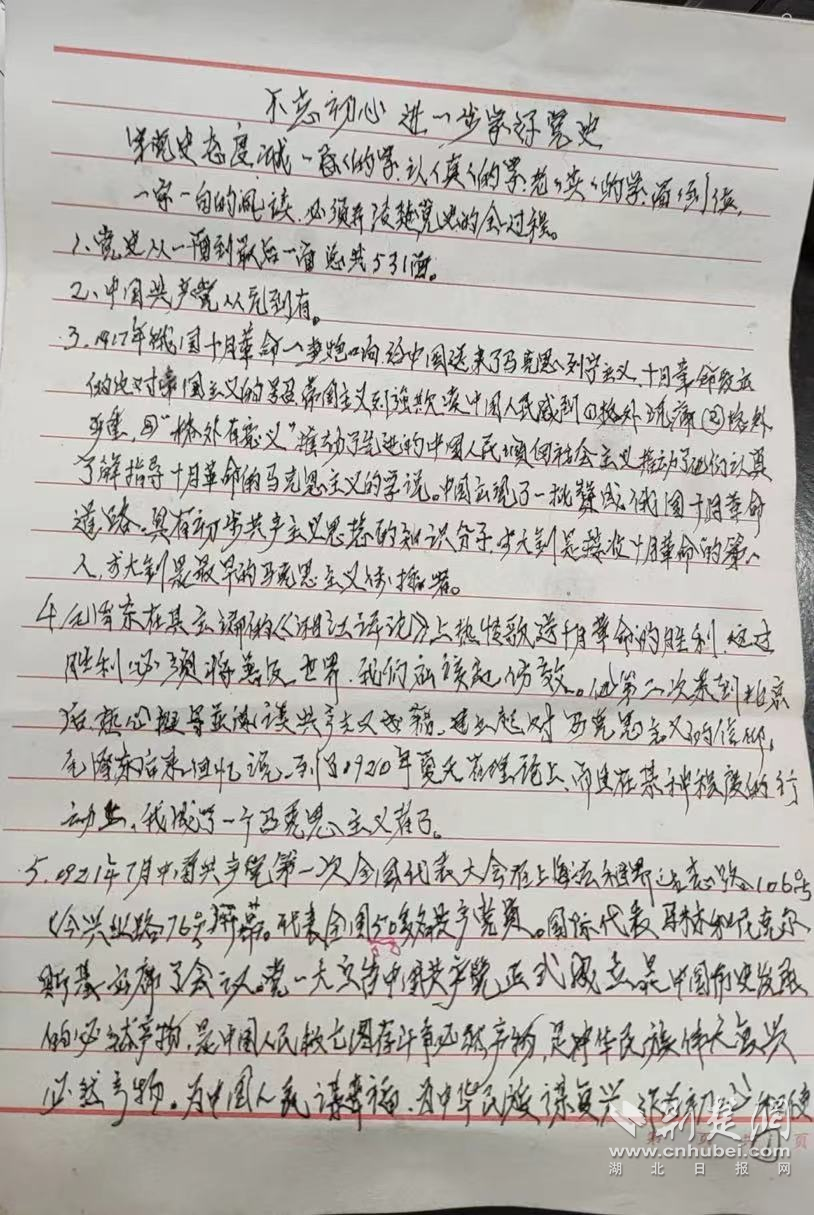 不忘初心 进一步学好党史
学党史态度诚一 的学.认〈真〈的学.老〈实〈的学 到位,
一字一句的 读.必须弄清楚党史的全过程。
1、党史从一面到最后一面总共531面。
2、中国共产党从无到有。
3、1917年俄国十月革命一声炮响.给中国送来了马克思列宁主义.十月革命发出
的反对帝国主义的号召.帝国主义列强欺凌中国人民感到①格外 ②格外
重,③"格外有意义"推动了先进的中国人民倾向社会主义推动了他们认真
了解指导十月革命的马克思主义的学说。中国出现了一批赞成俄国十月革命
道路.具有初步共产主义思想的知识分子.李大钊是接收十月革命的第一
人,李大钊是最早的马克思主义传播者。
4、毛泽东在其主编的《湘江评论》上热情歌送十月革命的胜利.
胜利必须将 世界.我们应该起仿效。他第二次来到北京
后.热心 读共产主义书籍.建立起对马克思主义的信仰.
毛泽东后来回忆说.到了1920年夏天在理论上.而且在某种程度的行
动上.我成了一个马克思主义者了。
5、1921年7月中国共产党第一次全国代表大会在上海法租界 志路106号
(今兴业路76号)开幕。代表全国50多名共产党员。国际代表马林和尼克尔
斯基出席了会议.党一大宣告中国共产党正式成立.是中国历史发展
的必然产物.是中国人民救亡图存斗争必然产物.是中华民族伟大复兴
必然产物。为中国人民谋幸福.为中华民族谋复兴 初心 使
荆楚网
www.cnhubei.com
湖北日报网